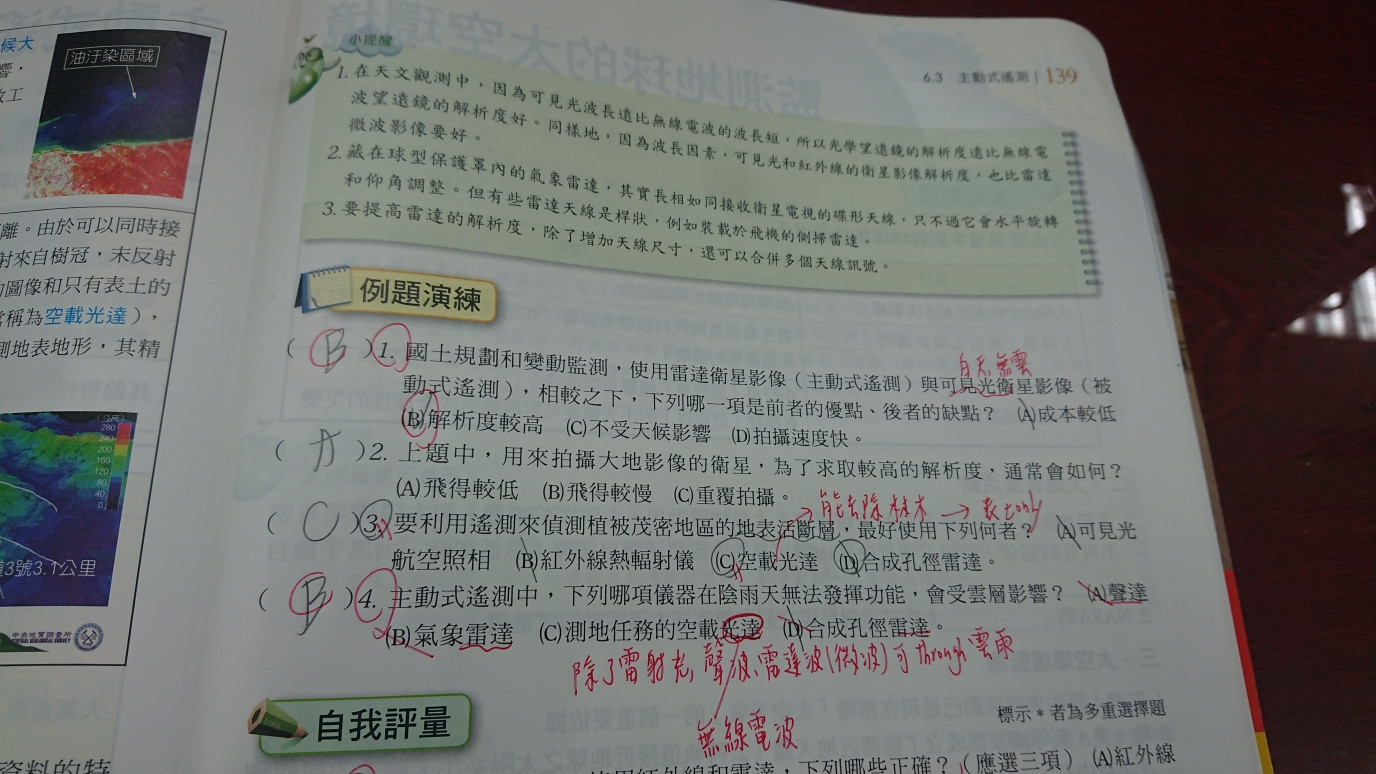 候大
響，
油汙染區域
離。由於可以同時接
射來自樹冠，末反射
圖像和只有表土的
稱為空載光達），
測地表地形，其精
（公尺）
280
240
200
160
120
80
40
0
3號3.1公里
中央地質調查所
CENTRAL GEOLOGICAL SURVEY
資料的特
6.3 主動式遙測 139
小提醒
1. 在天文觀測中，因為可見光波長遠比無線電波的波長短，所以光學望遠鏡的解析度遠比無線電
波望遠鏡的解析度好。同樣地，因為波長因素，可見光和紅外線的衛星影像解析度，也比雷達
微波影像要好。
2. 藏在球型保護罩內的氣象雷達，其實長相如同接收衛星電視的碟形天線，只不過它會水平旋轉
和仰角調整。但有些雷達天線是桿狀，例如裝載於飛機的側掃雷達。
3. 要提高雷達的解析度，除了增加天線尺寸，還可以合併多個天線訊號。
例題演練
白天無雲
( B )1. 國土規劃和變動監測，使用雷達衛星影像（主動式遙測）與可見光衛星影像（被
動式遙測），相較之下，下列哪一項是前者的優點、後者的缺點？ (A)成本較低
(B)解析度較高 (C)不受天候影響 (D)拍攝速度快。
( A )2. 上題中，用來拍攝大地影像的衛星，為了求取較高的解析度，通常會如何？
(A)飛得較低 (B)飛得較慢 (C)重覆拍攝。
→ 能去除林木 → 表土only
( C )3. 要利用遙測來偵測植被茂密地區的地表活斷層，最好使用下列何者？ (A)可見光
航空照相 (B)紅外線熱輻射儀 (C)空載光達 (D)合成孔徑雷達。
( B )4. 主動式遙測中，下列哪項儀器在陰雨天無法發揮功能，會受雲層影響？ (A)聲達
(B)氣象雷達 (C)測地任務的空載光達 (D)合成孔徑雷達。
除了雷射光，聲波、雷達波(微波)可through雲雨
無線電波
標示 * 者為多重選擇題
自我評量
使用紅外線和雷達，下列哪些正確？（應選三項） (A)紅外線